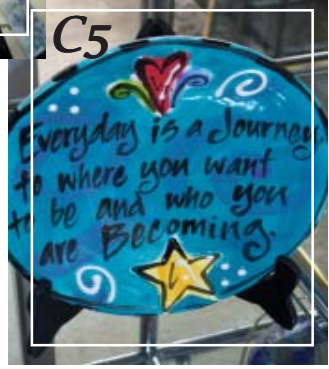 C5
Everyday is a Journey
to where you want
to be and who you
are Becoming.